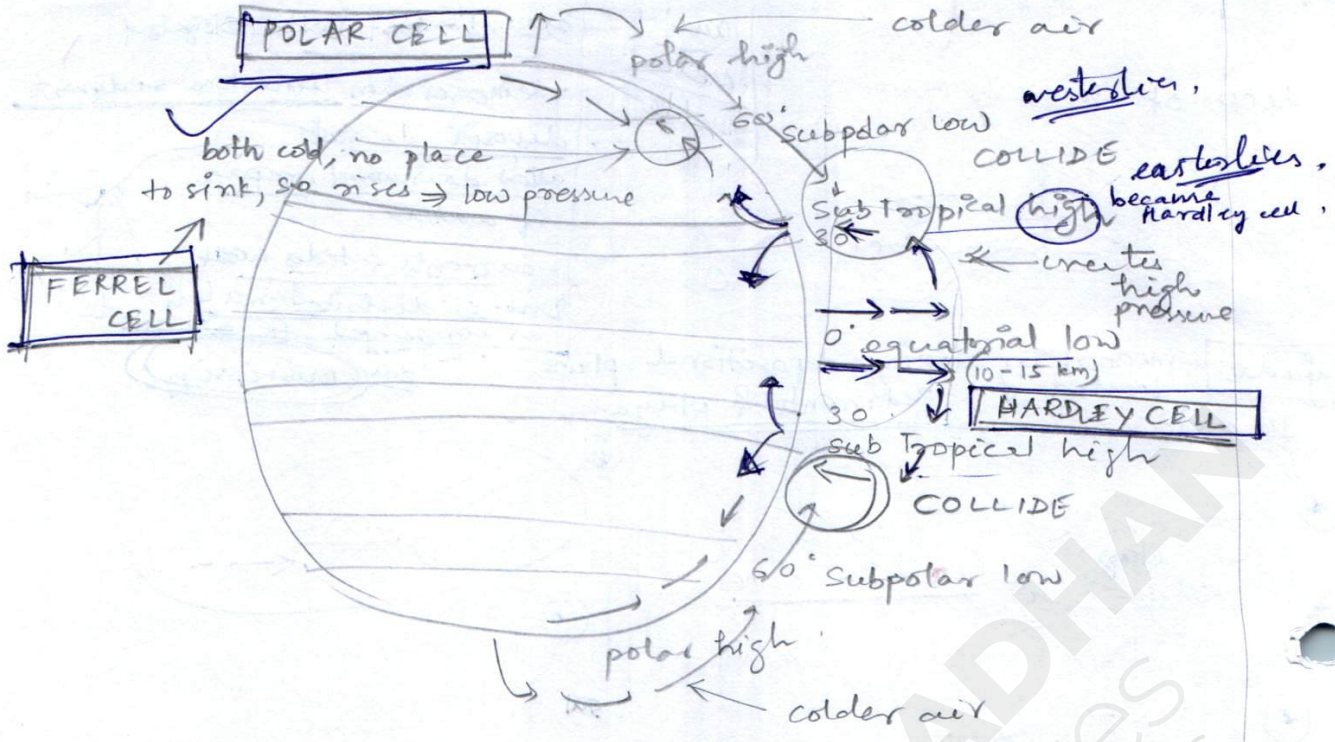 POLAR CELL
colder air
polar high
westerlies,
60° subpolar low
COLLIDE
easterlies,
both cold, no place
to sink, so rises ⇒ low pressure
Sub Tropical high
became
Hardley cell,
30
creates
high
pressure
FERREL
CELL
0° equatorial low
(10-15 km)
HARDLEY CELL
30
Sub Tropical high
COLLIDE
60° Subpolar low
polar high
colder air
ADHAN
es